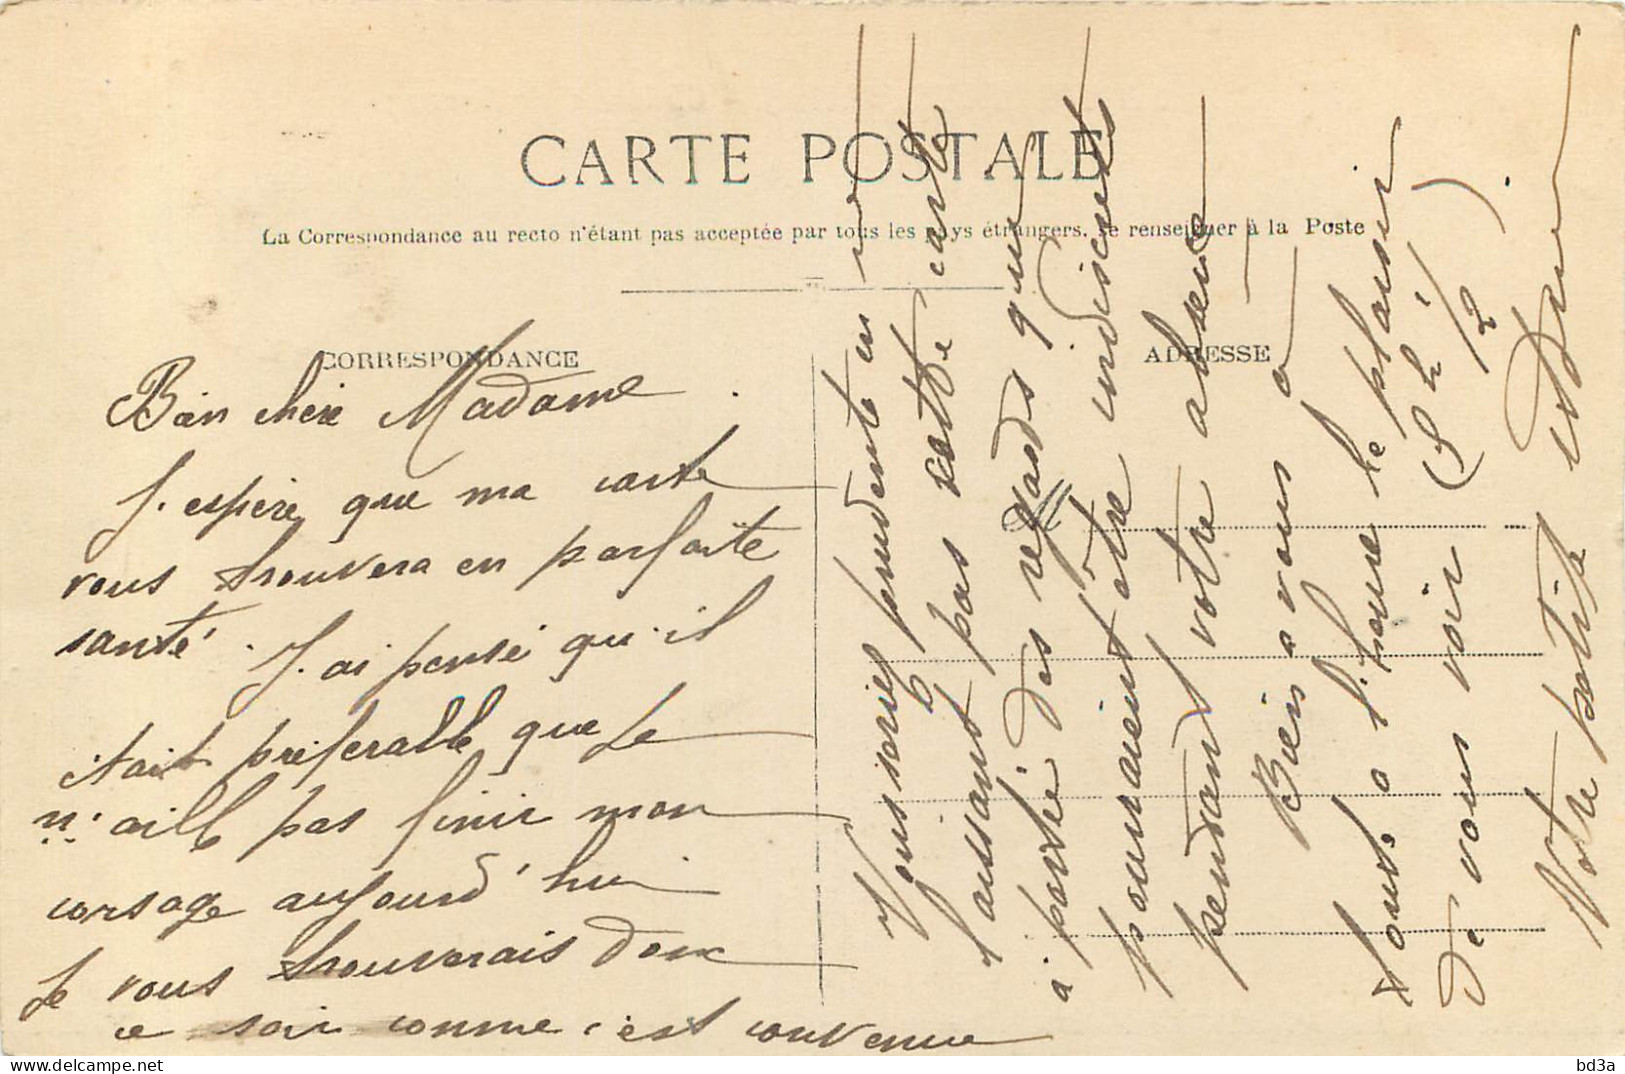 CARTE POSTALE
La Correspondance au recto n'étant pas acceptée par tous les pays étrangers, se renseigner à la Poste
CORRESPONDANCE
ADRESSE
Bien chère Madame
J'espère que ma carte
vous trouvera en parfaite
santé. J'ai pensé qu'il
était préférable que je
n'aille pas finir mon
corsage aujourd'hui
Je vous trouverais donc
ce soir comme c'est convenue
Vous seriez prudente en ne
laissant pas cette carte
à portée des regards qui
pourraient être indiscrets
pendant votre absence
Bien à vous a
toute à l'heure le plaisir
de vous voir (5h 1/2)
Votre petite
bd3a